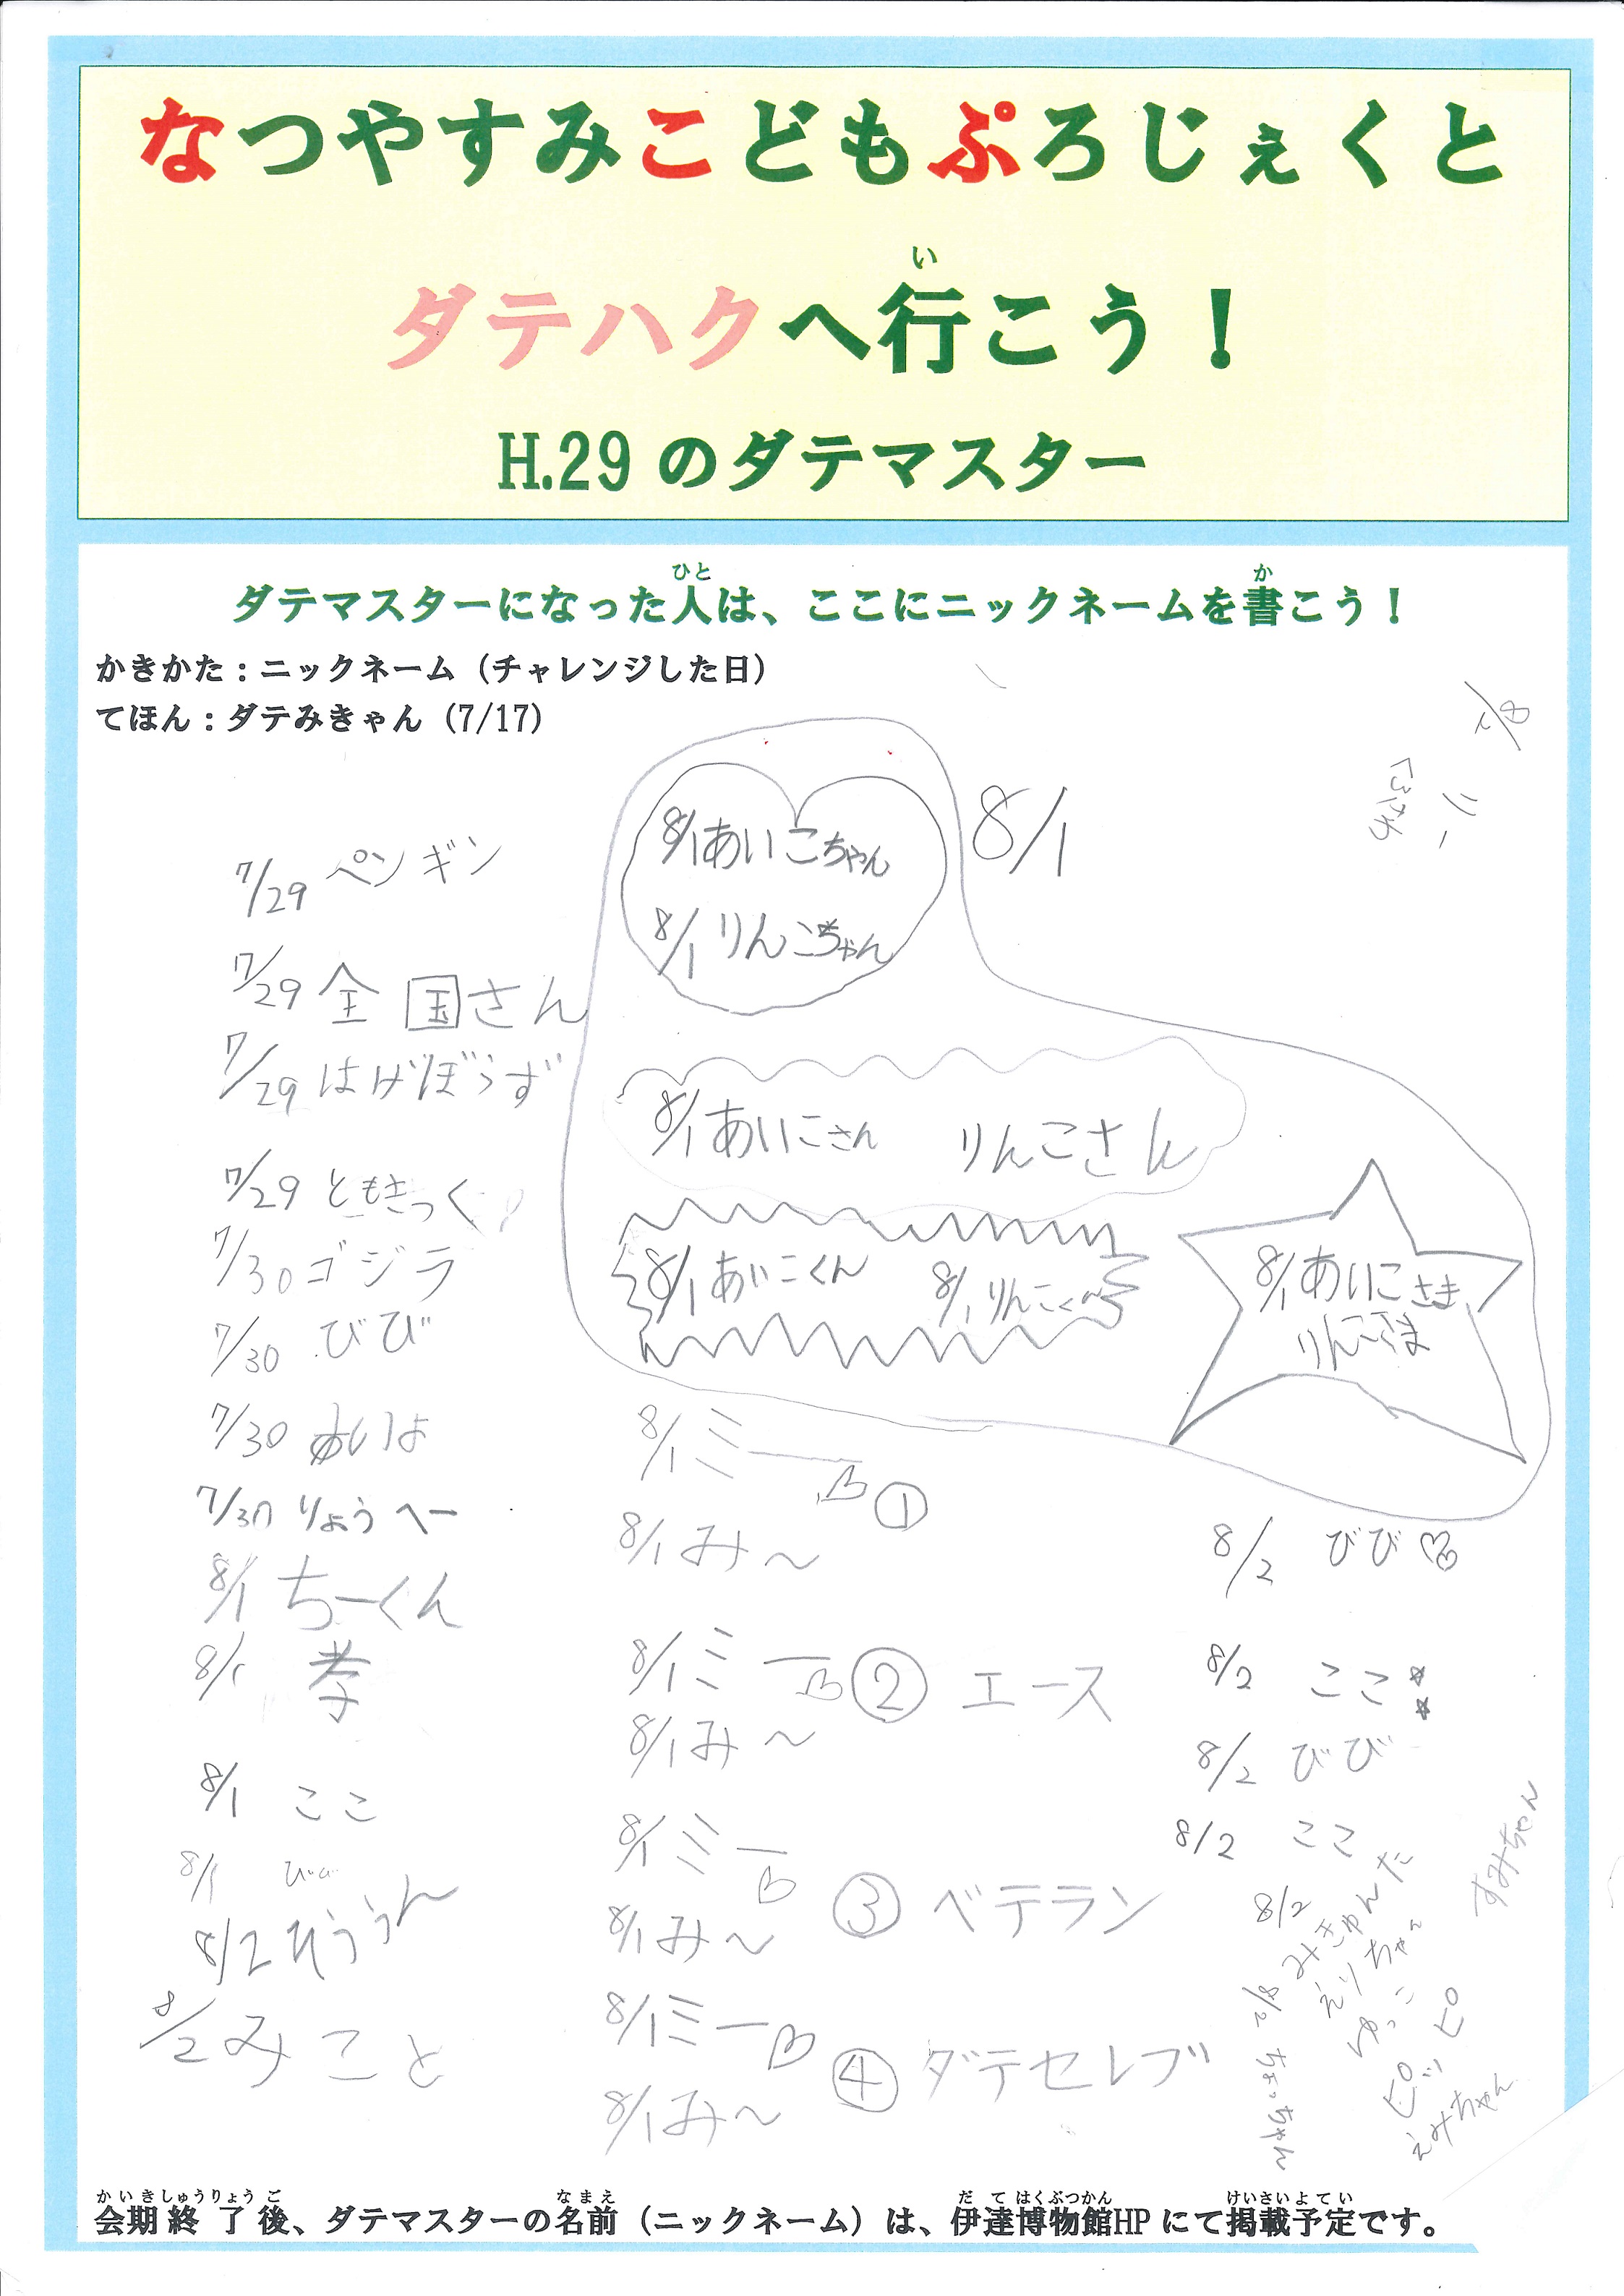 なつやすみこどもぷろじぇくと
ダテハクへ行こう！
い
H.29のダテマスター
ダテマスターになった人は、ここにニックネームを書こう！
ひと
か
かきかた：ニックネーム（チャレンジした日）
てほん：ダテみきゃん（7/17）
7/29 ペンギン
7/29 全国さん
7/29 はげぼうず
7/29 ともきっく
7/30 ゴジラ
7/30 びび
7/30
7/30 りょうへー
8/1 ちーくん
8/1 孝
8/1 ここ
8/1 びび
8/2 そううん
8/2 みこと
8/1あいこちゃん
8/1 りんこちゃん
8/1
8/1あいこさん りんこさん
8/1あいこくん 8/1りんこくん
8/1あいこさま
りんこさま
8/1ミー
①
8/1み～
8/1ミー ② エース
8/1み～
8/1ミー
③ ベテラン
8/1み～
8/1ミー
④ ダテセレブ
8/1み～
8/2 リー
8/2 びび
8/2 ここ
8/2 びび
8/2 ここ
8/2 みきゅんた
えりちゃん
ゆっこ
ピッピ
えみちゃん
すみちゃん
8/2 ちょっちゃん
会期終了後、ダテマスターの名前（ニックネーム）は、伊達博物館HPにて掲載予定です。
かいきしゅうりょうご
なまえ
だてはくぶつかん
けいさいよてい